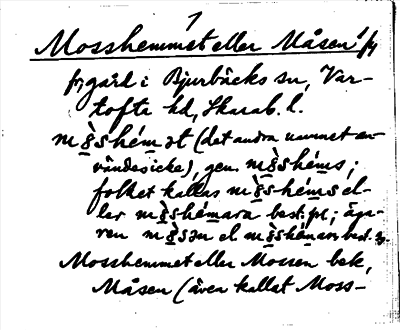 1
Mosshemmet eller Måsen 1/4
fgård i Bjurbäcks sn, Var-
tofta hd, Skarab. l.
mɷ̀shémət (det andra namnet an-
vändes icke), gen. mɷ̀shéms;
folket kallas mɷ̀s-héms el-
ler mɷ̀shémara best. pl.; äga-
ren mɷ̀sən el mɷ̀shémarn best. sg.
Mosshemmet eller Mossen bek,
Måsen (även kallat Moss-